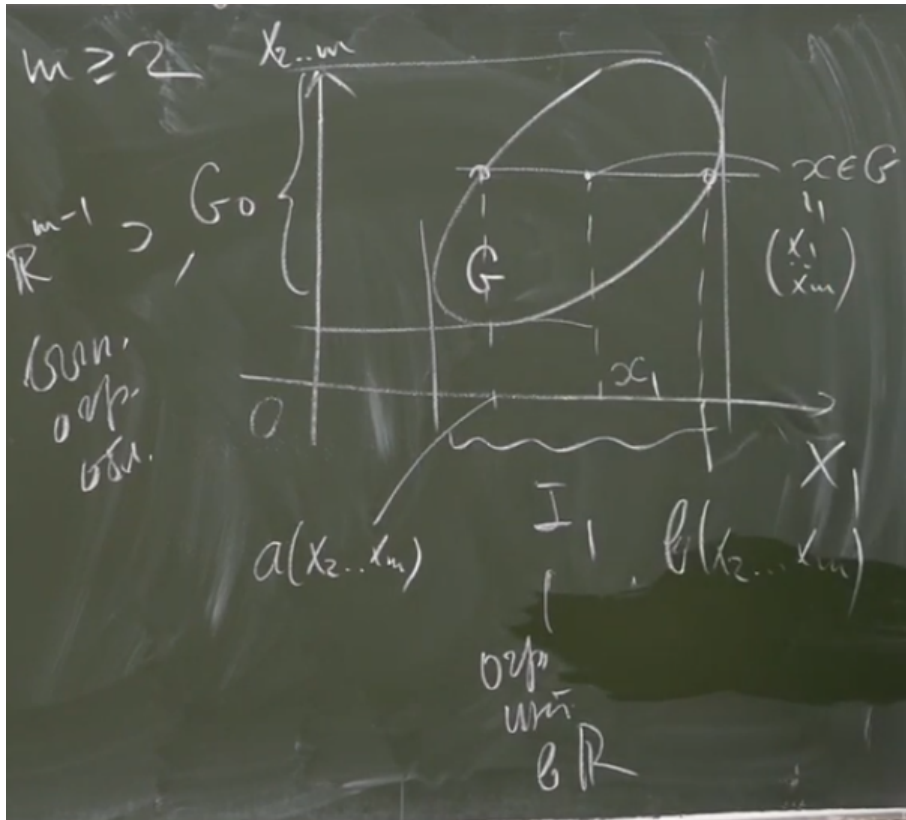 m ≥ 2
X₂..m
ℝ^{m-1} ⊃ G₀
вып.
огр.
обл.
G
x ∈ G
"
(x₁ .. xₘ)
O
x₁
X₁
a(x₂..xₘ)
I₁
b(x₂...xₘ)
огр
инт.
в ℝ